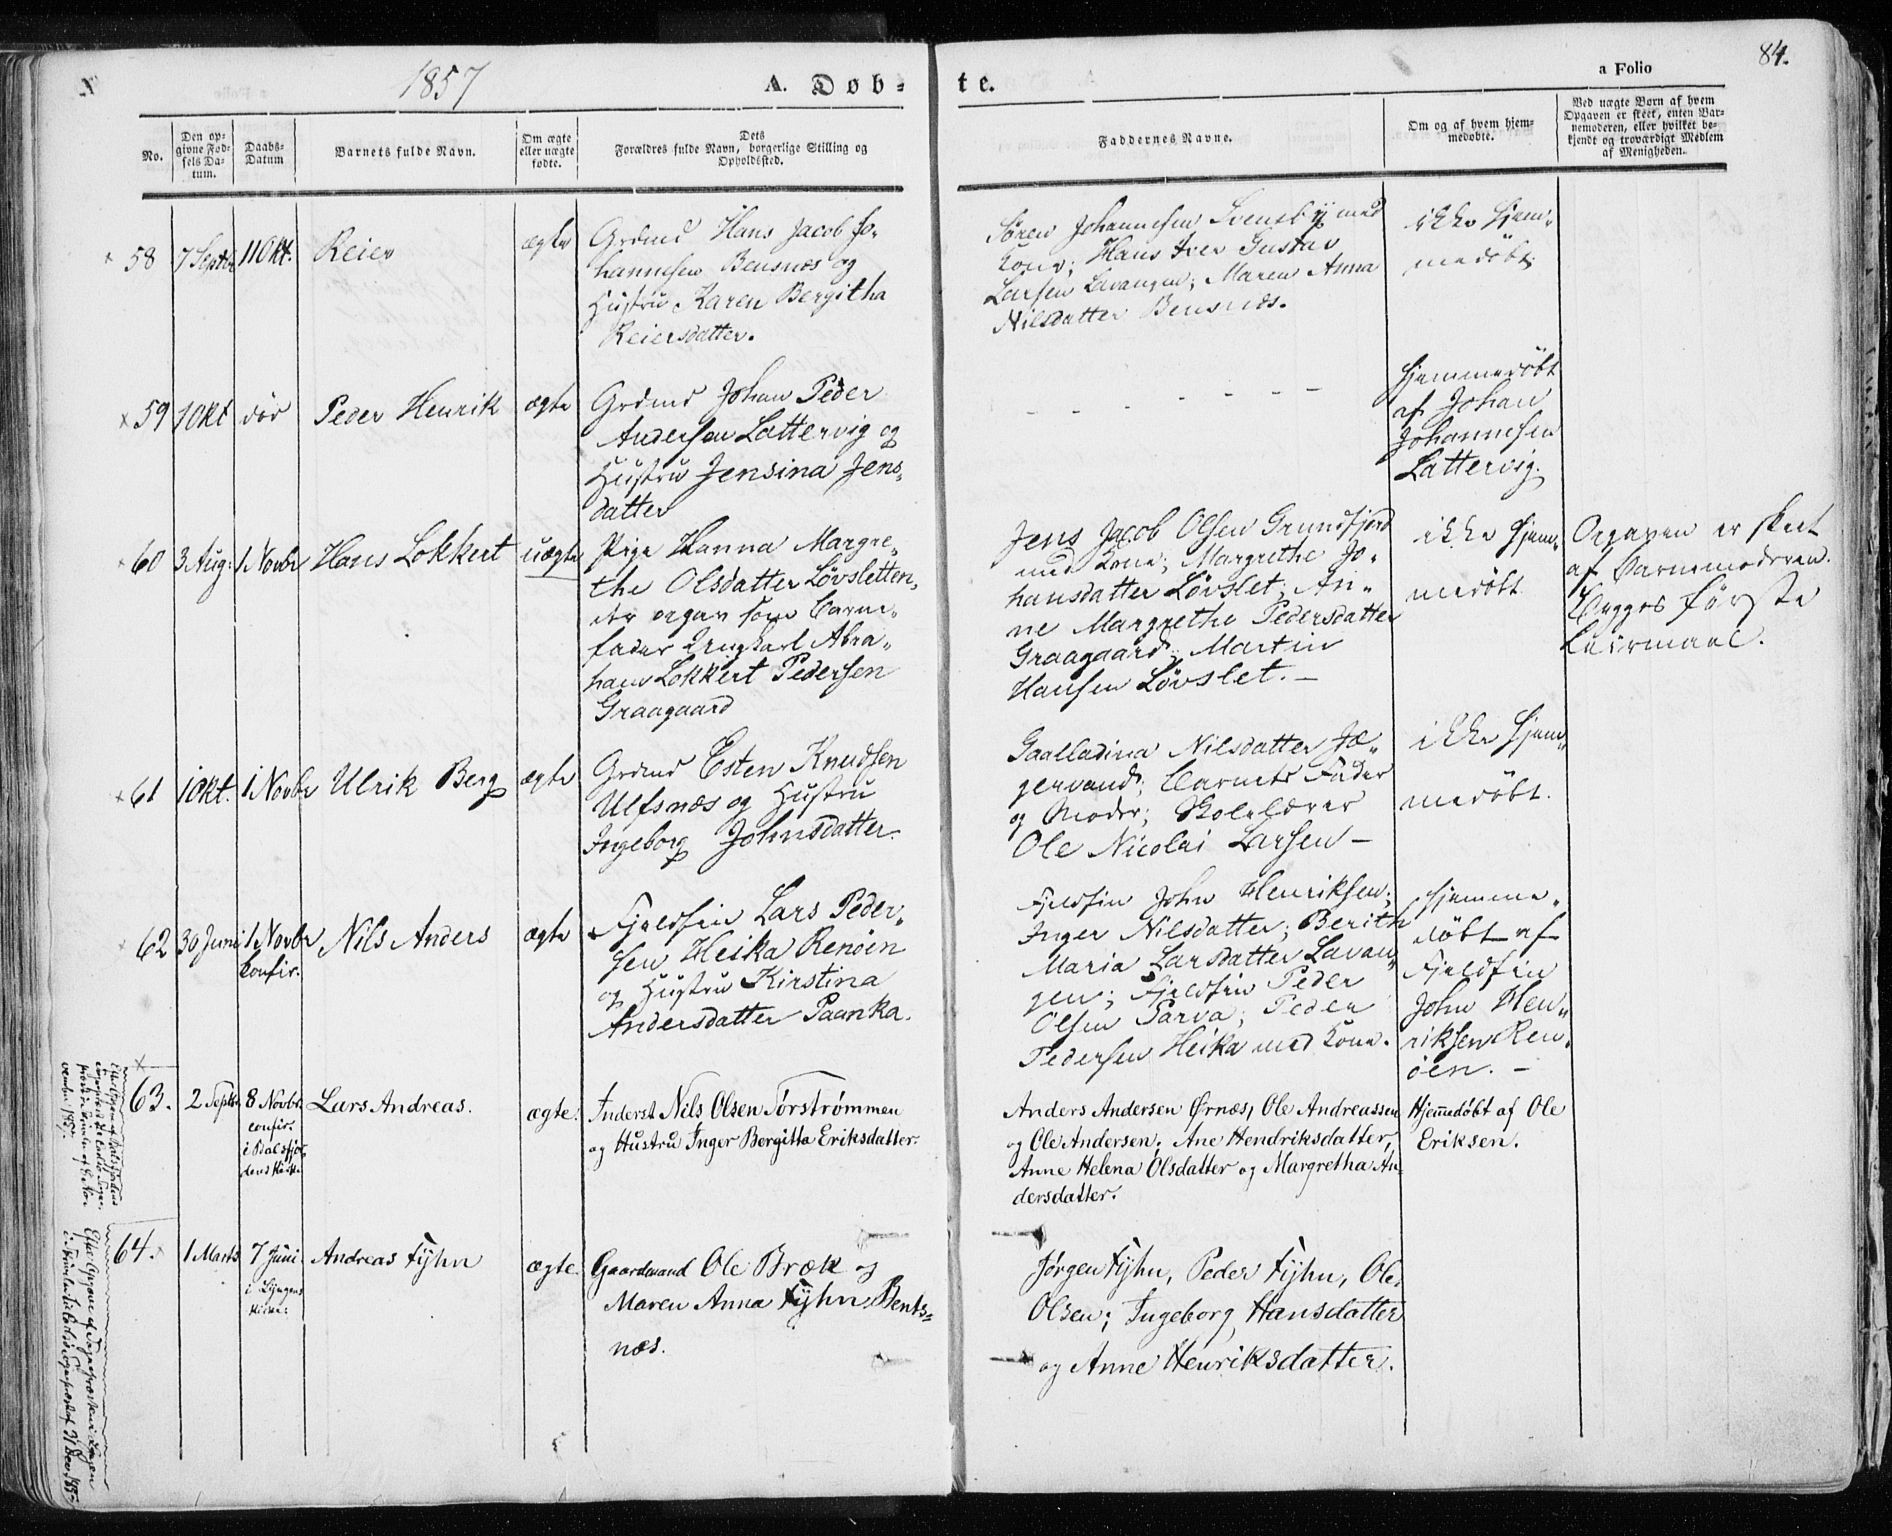 1857
A. Døb-
te.
84.
a Folio
No.
Den op-
givne Fød-
sels Da-
tum.
Daabs-
Datum
Barnets fulde Navn.
Om ægte
eller uægte
fødte.
Dets
Forældres fulde Navn, borgerlige Stilling og
Opholdssted.
Faddernes Navne.
Om og af hvem hjem-
medøbte.
Ved uægte Børn af hvem
Opgaven er skeet, enten Bar-
nemoderen, eller hvilket be-
kjendt og troværdigt Medlem
af Menigheden.
58
7 Septbr
11 Okt.
Reier
ægte
Grdmd Hans Jacob Jo-
hannesen Bensnæs og
Hustru Karen Bergitha
Reiersdatter.
Søren Johannesen Svensby med
Kone; Hans Iver Gustav
Larsen Lavangen; Maren Anna
Nilsdatter Bensnæs.
ikke hjem-
medøbt.
59
1 Okt
død
Peder Henrik
ægte
Grdmd Johan Peder
Andersen Lattervig og
Hustru Jensina Jens-
datter
hjemmedøbt
af Johan
Johannesen
Lattervig.
60
3 Aug:
1 Novbr
Hans Lokkert
uægte
Pige Hanna Margre-
the Olsdatter Løvsletten,
der opgav som Barne-
fader Ungkarl Abra-
ham Lokkert Pedersen
Graagaard
Jens Jacob Olsen Grundfjord
med Kone; Margrethe Jo-
hansdatter Løvslet; An-
ne Margrethe Pedersdatter
Graagaard; Martin
Hansen Løvslet. —
ikke hjem-
medøbt
Opgaven er skeet
af Barnemoderen.
Begges første
Leiermaal.
61
1 Okt.
1 Novbr
Ulrik Berg
ægte
Grdmd Esten Knudsen
Ulfsnæs og Hustru
Ingeborg Johnsdatter.
Gaalladina Nilsdatter Jæ-
gervand; Barnets Fader
og Moder; Skolelærer
Ole Nicolai Larsen —
ikke hjem-
medøbt.
62
30 Juni
1 Novbr
Confir.
Nils Anders
ægte
Fjeldfin Lars Peder-
sen Heika Renøen
og Hustru Kirstina
Andersdatter Paanka.
Fjeldfin John Henriksen;
Inger Nilsdatter; Berith
Maria Larsdatter Lavan-
gen; Fjeldfin Peder
Olsen Parva; Peder
Pedersen Heika med Kone.
Hjemme-
døbt af
Fjeldfin
John Hen-
riksen Ren-
øen. —
63.
2 Septbr.
8 Novbr.
confir.
i Balsfjor-
dens Kirke
Lars Andreas.
ægte.
Inderst Nils Olsen Tørstrømmen
og Hustru Inger Bergitta Eriksdatter.
Anders Andersen Ørnæs, Ole Andreassen
og Ole Andersen; Ane Hendriksdatter,
Anne Helena Olsdatter og Margretha An-
dersdatter.
Hjemmedøbt af Ole
Eriksen.
64.
1 Marts
7 Juni
i Lyngens
Kirke.
Andreas Fyhn
ægte.
Gaardmand Ole Bræk og
Maren Anna Fyhn, Bents-
næs.
Jørgen Fyhn, Peder Fyhn, Ole
Olsen; Ingeborg Hansdatter
og Anne Henriksdatter.